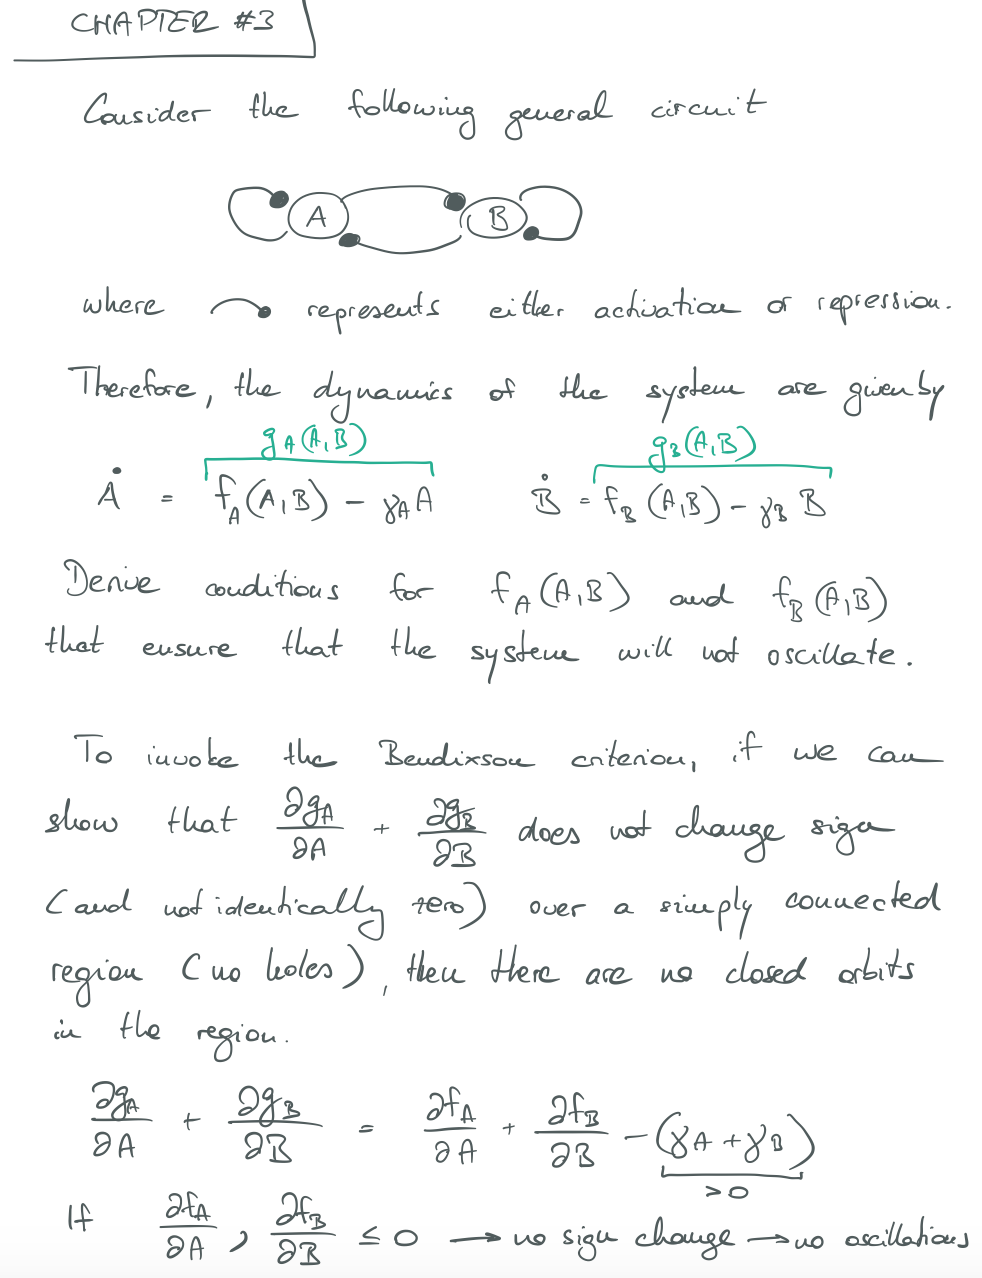 CHAPTER #3
Consider the following general circuit
A B
where represents either activation or repression.
Therefore, the dynamics of the system are given by
g_A(A,B) g_B(A,B)
Ȧ = f_A(A,B) - γ_A A Ḃ = f_B(A,B) - γ_B B
Derive conditions for f_A(A,B) and f_B(A,B)
that ensure that the system will not oscillate.
To invoke the Bendixson criterion, if we can
show that ∂g_A/∂A + ∂g_B/∂B does not change sign
(and not identically zero) over a simply connected
region (no holes), then there are no closed orbits
in the region.
∂g_A/∂A + ∂g_B/∂B = ∂f_A/∂A + ∂f_B/∂B - (γ_A + γ_B)
>0
If ∂f_A/∂A, ∂f_B/∂B ≤ 0 → no sign change → no oscillations